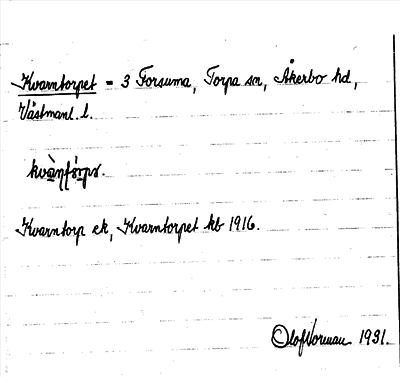 Kvarntorpet = 3 Forsuma, Torpa sn, Åkerbo hd,
Västmanl. l.
Kvarntorp ek, Kvarntorpet kb 1916.
Olof Norman 1931.